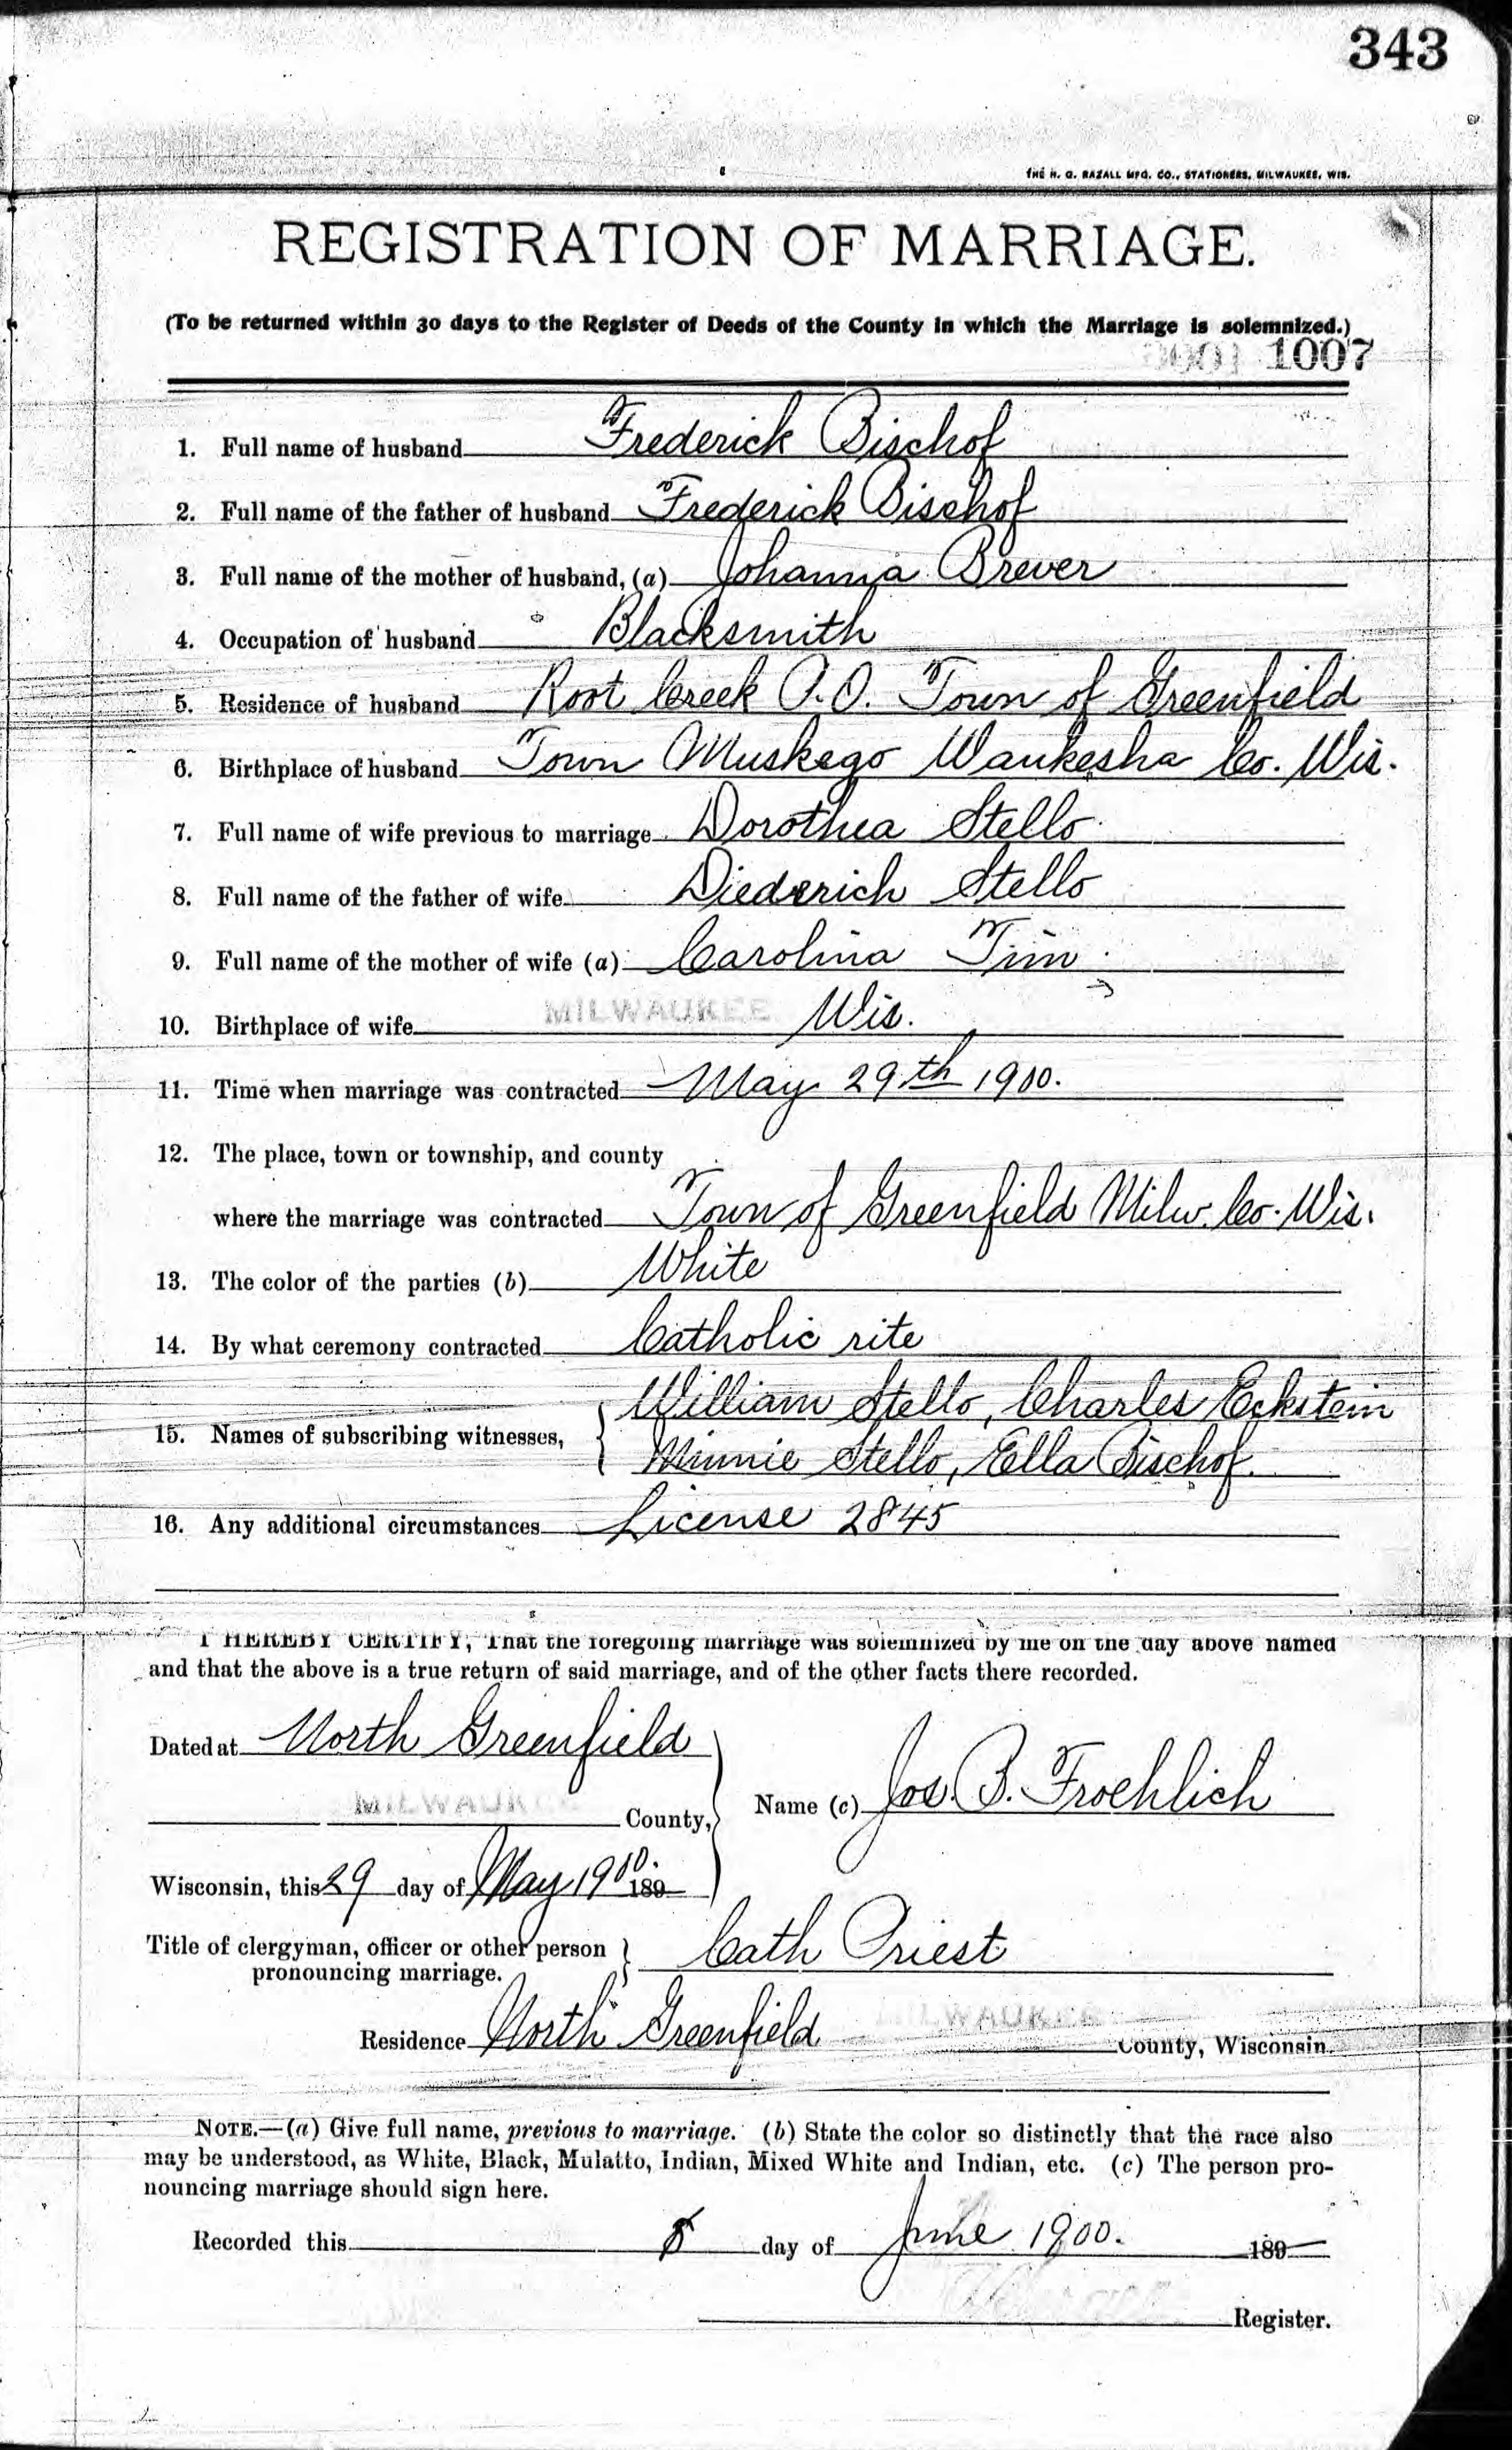 343
THE H. G. RAZALL MFG. CO., STATIONERS, MILWAUKEE, WIS.
REGISTRATION OF MARRIAGE.
(To be returned within 30 days to the Register of Deeds of the County in which the Marriage is solemnized.)
1007
1. Full name of husband Frederick Bischof
2. Full name of the father of husband Frederick Bischof
3. Full name of the mother of husband, (a) Johanna Brever
4. Occupation of husband Blacksmith
5. Residence of husband Root Creek P.O. Town of Greenfield
6. Birthplace of husband Town Muskego Waukesha Co. Wis.
7. Full name of wife previous to marriage Dorothea Stello
8. Full name of the father of wife Diederich Stello
9. Full name of the mother of wife (a) Carolina Tim
10. Birthplace of wife MILWAUKEE Wis.
11. Time when marriage was contracted May 29th 1900.
12. The place, town or township, and county
where the marriage was contracted Town of Greenfield Milw. Co. Wis.
13. The color of the parties (b) White
14. By what ceremony contracted Catholic rite
William Stello, Charles Eckstein
15. Names of subscribing witnesses, Minnie Stello, Ella Bischof.
16. Any additional circumstances License 2845
I HEREBY CERTIFY, That the foregoing marriage was solemnized by me on the day above named
and that the above is a true return of said marriage, and of the other facts there recorded.
Dated at North Greenfield
MILWAUKEE County, Name (c) Jos. B. Froehlich
Wisconsin, this 29 day of May 1900. 189
Title of clergyman, officer or other person
pronouncing marriage. Cath Priest
Residence North Greenfield MILWAUKEE County, Wisconsin.
NOTE.—(a) Give full name, previous to marriage. (b) State the color so distinctly that the race also
may be understood, as White, Black, Mulatto, Indian, Mixed White and Indian, etc. (c) The person pro-
nouncing marriage should sign here.
Recorded this 8 day of June 1900. 189
Register.